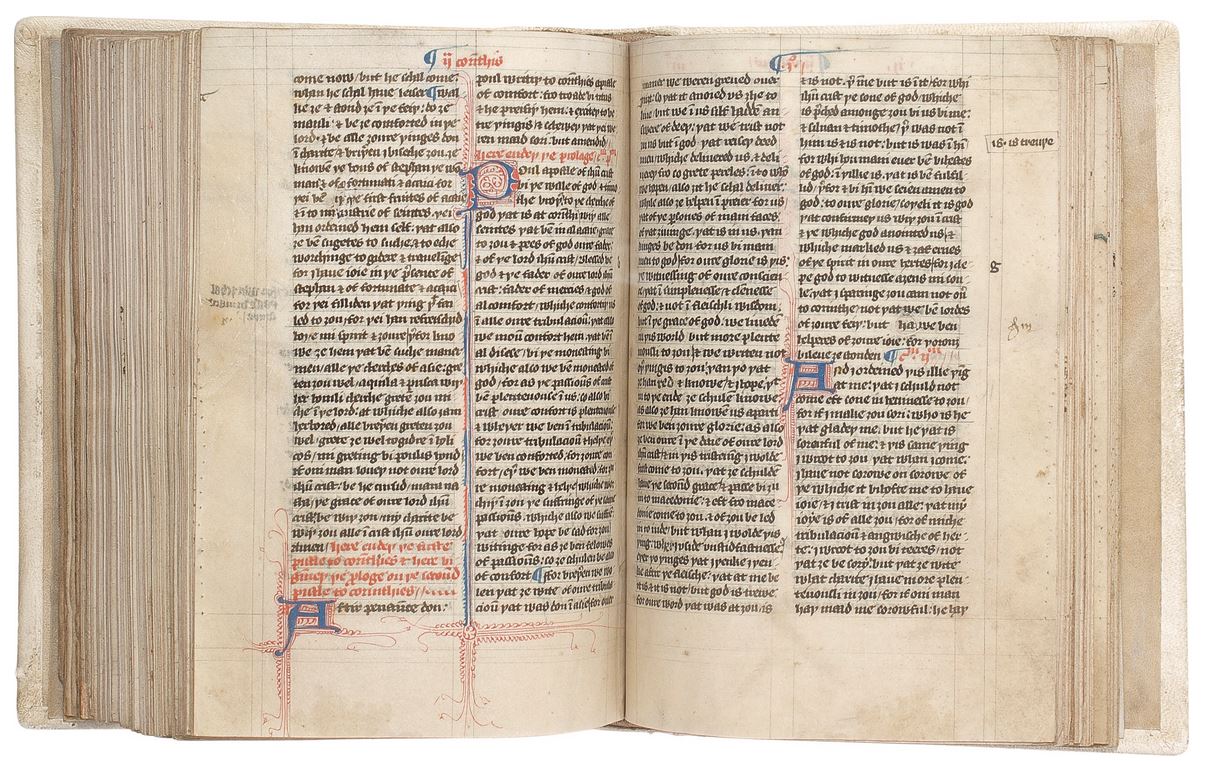 ij corīthis
come now / but he schal come:
whan he schal haue leiser ¶ wal
ke ȝe & stond ȝe ī ye feiy: do ȝe
manli: & be ȝe comforted in ye
lord: & be alle ȝoure yinges don
ī charite & briyeren ı̄ bische ȝou ȝe
knowen ye hous of stephan ye wo
man: & of fortunat & acaie for
yei ben ye first fruites of acaie
& ī to mynistrie of seintes yei
han ordeined hem self: yat also
ȝe be sugetes to suche: & to eche
worchinge to gidere & traueilīge
for i haue ioie in ye presence of
stephan & of fortunate & acaie
for yei filliden yat ying
led to ȝou for yei han refreschid
boye mi spirit & ȝoure for
we ȝe hem yat ben suche maner
men / alle ye cherches of asie: gre
ten ȝou wel / aquila & prisca wiy
her homli cherche grete ȝou mi
che ī ye lord: at whiche also i am
herbored / alle breyeren greten ȝou
wel / grete ȝe wel togidre ī holi
cos / mi greting bi poulis hond
if oni man louey not oure lord
ihū crist: be he cursid / maran a
tha / ye grace of oure lord ihū
crist be wiy ȝou / my charite be
wiy ȝou alle ī crist ihū oure lord
amen / here endey ye firste
pistle to corīthies & here bi
ginney ye prologe on ye secound
pistle to corinthies /
After penaunce don:
poul writiy to corīthis epistle
of comfort: fro troade bi titus
& he preisiy hem: & exciteȝ to be
tre yingis & schewey yat yei we
ren maad sori: but amendid /
here endey ye prologe
Poul apostle of ihū crist
bi ye wille of god & timo
the broyer to ye cherche of
god yat is at corīthi wiy alle
seintes yat be in al acaie: grace
to ȝou & pees of god oure fader:
& of ye lord ihū crist / blessed be
god & ye fader of oure lord ihū
crist: fader of mercies & god of
al comfort / whiche comfortiy us
ī alle oure tribulacioū: yat also
we moun confort hem yat bē ī
al disese / bi ye monesting bi
whiche also we ben monestid of
god / for as ye passiouns of crist
ben plenteuouse ī us: so also bi
crist oure confort is plenteuouse
& wheyer we ben ī tribulacioū:
for ȝoure tribulacioū & helye
we ben conforted: for ȝoure con
fort / eyer we ben monestid: for ȝou
re monesting & helye whiche wor
chiy ī ȝou ye suffringe of ye same
passiouns / whiche also we suffren
yat oure hope be sad for ȝou /
witinge for as ȝe ben felowes
of passiouns: so ȝe schulen be also
of confort ¶ for breyeren we wo
len yat ȝe wite of oure tribula
cioū yat was don ī asie: for ouer
maner we weren greued ouer
so yat it anoied us ȝhe to
lyue: but we ī us silf hadde an
swere of deey: yat we trist not
in us but ī god yat reisey deed
men / whiche deliuered us & deli
uerey fro so grete pereles: ī to whō
we hopen / also ȝet he schal deliuer:
while also ȝe helpen ī preier for us
yat of ye persones of mani faces:
of yat ȝiuinge yat is in us: yan
kinges be don for us bi mani
men to god / for oure glorie is yis:
ye witnessing of oure conscien
ce / yat ī simplenesse & clenesse
of god: & not ī fleischli wisdom:
but ī ye grace of god: we liueden
in yis world: but more plente
uousli to ȝou & we writen not
oyer yingis to ȝou: yan yo yat
ȝe han red & knowe / & i hope yat
in to ye ende ȝe schule knowe
as also ȝe han knowen us aparti
for we ben ȝoure glorie: as also
ȝe ben oure ī ye daie of oure lord
ihū crist & in yis tristing i wolde
first come to ȝou yat ȝe schulde
haue ye secound grace & passe bi ȝou
in to macedonie: & eft fro mace
donie come to ȝou & of ȝou be led
in to iude / but whan i wolde yis
ying wheyer i vside vnstidfastnesse:
eyer yo yinges yat i yenke: i yen
ke aftir ye fleische: yat at me be
it is & it is not / but god is trewe:
for oure word yat was at ȝou / is
& is not: is not yer īne but is ī it: for whi
ihū crist ye sone of god whiche
is preched amonge ȝou bi us bi me:
& siluan & timothe: yer was not ī
him is & is not: but is was ī hī
for whi hou mani euer bē biheste
of god: ī yilke is: yat is bē fulfil
lid / yerfor & bi hī we seien amen to
god: to oure glorie / soyeli it is god
yat confermey us wiy ȝou ī crist
& ye whiche god anointed us: &
whiche markid us & ȝaf ernes
of ye spirit in oure hertes / for i cle
pe god to witnesse aȝens mi sou
le: yat i sparinge ȝou cam not on
to corinthe / not yat we be lordes
of ȝoure feiy: but we ben
helperes of ȝoure ioie: for yoruȝ
bileue ȝe stonden ¶
And i ordeined yis ilke ying
at me: yat i schuld not
come eft sone in heuinesse to ȝou:
for if i make ȝou sori: who is he
yat gladey me: but he yat is
sorouful of me: & yis same ying
i wroot to ȝou yat whan i come:
i haue not sorowe on sorowe of
ye whiche it bihofte me to haue
ioie / & i trist in ȝou alle: yat my
ioye is of alle ȝou / for of miche
tribulacioū & angwische of her
te: i wroot to ȝou bi teeres / not
yat ȝe be sory: but yat ȝe wite
what charite i haue more plen
teuousli in ȝou / for if oni man
hay maid me sorowful: he hay
is · is trewye
g